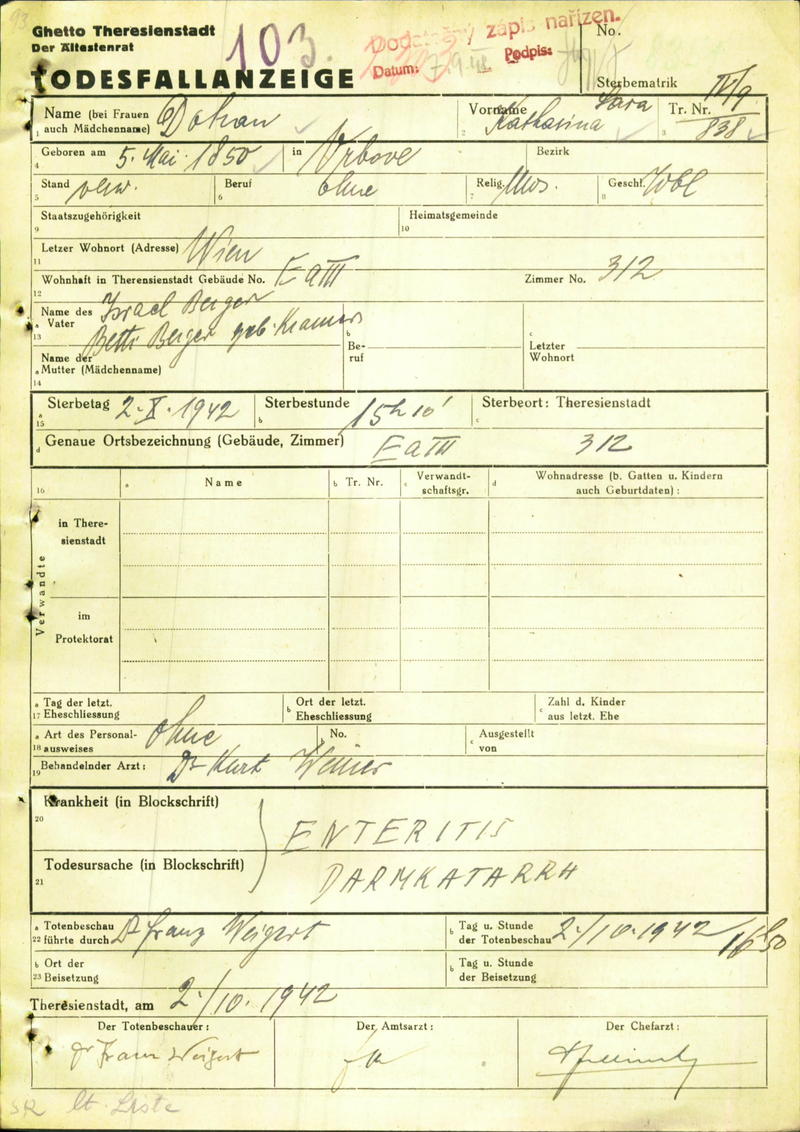 93
Ghetto Theresienstadt
Der Ältestenrat
103.
Dodatečný zápis nařízen.
Datum:
Podpis:
No.
TODESFALLANZEIGE
Sterbematrik
Name (bei Frauen auch Mädchenname)
1
Vorname Sara
Katharina
2
Tr. Nr. IV/9
838
3
Geboren am 5. Mai 1850 in Vrbove Bezirk
4
Stand verw. Beruf ohne Relig. Mos. Geschl. Wbl
5 6 7 8
Staatszugehörigkeit Heimatsgemeinde
9 10
Letzer Wohnort (Adresse) Wien
11
Wohnhaft in Therensienstadt Gebäude No. E a III Zimmer No. 312
12
Name des Vater Israel Berger
13
Betti Berger geb. Kramer
Name der Mutter (Mädchenname)
14
b Beruf
c Letzter Wohnort
a Sterbetag 2. X. 1942 b Sterbestunde 15h 10' c Sterbeort: Theresienstadt
15
d Genaue Ortsbezeichnung (Gebäude, Zimmer) E a III 312
16 a Name b Tr. Nr. c Verwandtschaftsgr. d Wohnadresse (b. Gatten u. Kindern auch Geburtdaten) :
Verwandte
in Theresienstadt
im Protektorat
a Tag der letzt. b Ort der letzt. c Zahl d. Kinder
17 Eheschliessung Eheschliessung aus letzt. Ehe
a Art des Personal- ohne b No. c Ausgestellt
18 ausweises von
Behandelnder Arzt: Dr Kurt Weiner
19
Krankheit (in Blockschrift)
20
ENTERITIS
Todesursache (in Blockschrift)
21
DARMKATARRH
a Totenbeschau Dr Franz Weigert b Tag u. Stunde 2./10. 1942 16h50
22 führte durch der Totenbeschau
b Ort der b Tag u. Stunde
23 Beisetzung der Beisetzung
Theresienstadt, am 2./10. 1942
Der Totenbeschauer: Der Amtsarzt: Der Chefarzt:
Dr Franz Weigert
lt. Liste